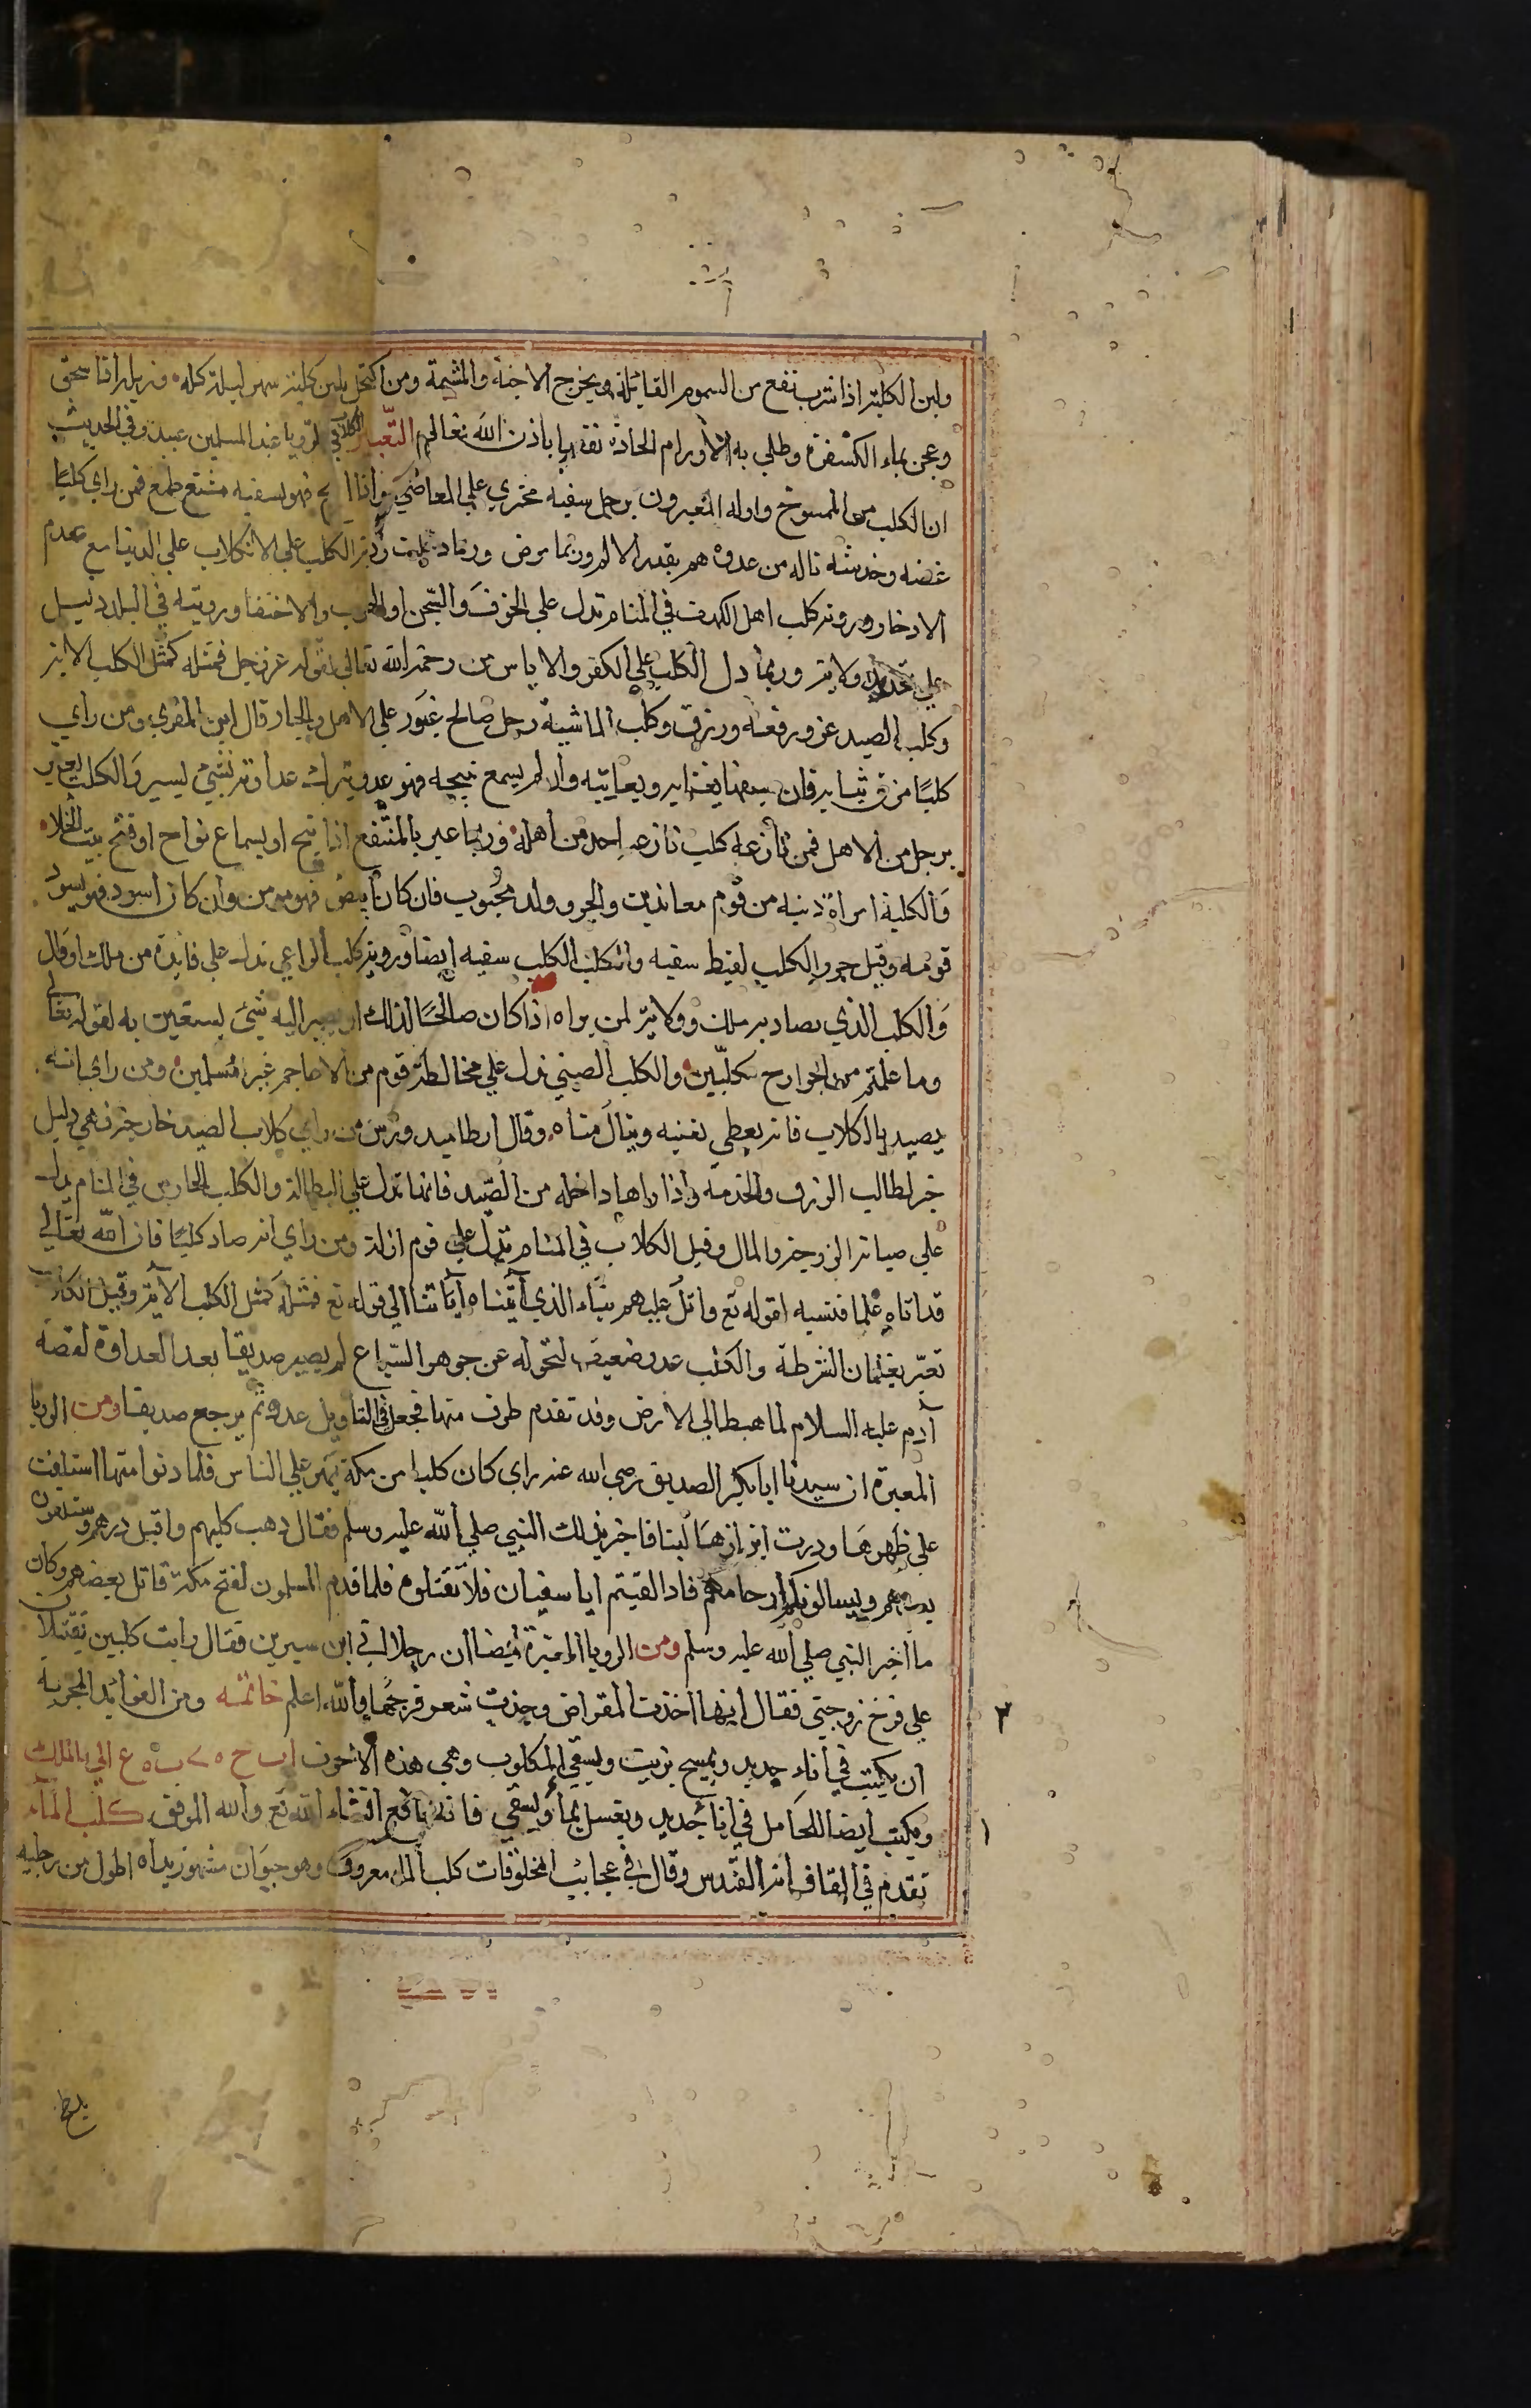 ولبن الكلبة اذا شرب نفع من السموم القاتلة ويخرج الاجنة والمشيمة ومن اكتحل بلبن كلبة سهر ليلته كله وزبله اذا سحق
وعجن بماء الكسفرة وطلي به الاورام الحادة نفعها باذن الله تعالى التعبير الكلاب في الرؤيا عند المسلمين عبيد وفي الحديث
ان الكلب من الممسوخ واوله المعبرون برجل سفيه مجتري علي المعاصي واذا نبح فهو سفيه مشنع طمع فمن راي كلبا
عضه وخدشه ناله من عدوه هم بقدر الالم وربما مرض وربما دلت رؤية الكلب علي الاتكلاب علي الدنيا مع عدم
الادخار ورؤية كلب اهل الكهف في المنام تدل علي الخوف والسجن او الهرب والاختفا ورويته في البلد دليل
علي تجديد ولاية وربما دل الكلب علي الكفر والاياس من رحمة الله تعالي لقوله عز وجل فمثله كمثل الكلب الاية
وكلب الصيد عز ورفعة ورزق وكلب الماشية رجل صالح غيور علي الاهل والجار قال ابن المقري ومن راي
كلبا مزق ثيابه فان سفها يغتابه ويعاتبه وان لم يسمع نبيحه فهو عدو يترك عداوته بشيء يسير والكلب يعبر
برجل من الاهل فمن نازعه كلب نازعه احد من اهله وربما عبر بالمنتفع اذا نبح او بسماع نواح او فتح بيت الخلاء
والكلبة امراة دنية من قوم معاندين والجرو ولد محبوب فان كان ابيض فهو مومن وان كان اسود فهو يسود
قومه وقيل جرو الكلب لقيط سفيه والكلب الكلب سفيه ايضا ورؤية كلب الراعي تدل علي فايدة من ملك او وال
والكلب الذي يصاد به ملك وولاية لمن يراه اذا كان صالحا لذلك او يصير اليه شيء يستعين به لقوله تعالي
وما علمتم من الجوارح مكلبين والكلب الصيني تدل علي مخالطة قوم من الاعاجم غير مسلمين ومن راي انه
يصيد بالكلاب فانه يعطي بغيته وينال مناه وقال ارطاميدورس من راي كلاب الصيد خارجة فهي دليل
خير لطالب الرزق والخدمة واذا راها داخلة من الصيد فانها تدل علي البطالة والكلب الحارس في المنام يدل
علي صيانة الزوجة والمال وقيل الكلاب في المنام تدل علي قوم اذلة ومن راي انه صاد كلبا فان الله تعالي
قد اتاه علما فنسيه لقوله تع واتل عليهم نباء الذي آتيناه آياتنا الي قوله تع فمثله كمثل الكلب الآية وقيل الكلاب
تعبر بغلمان الشرطة والكلب عدو ضعيف لتحوله عن جوهر السباع ثم يصير صديقا بعد العداوة لقصة
آدم عليه السلام لما هبط الي الارض وقد تقدم طرف منها فجعل في التاويل عدو ثم يرجع صديقا ومن الرويا
المعبرة ان سيدنا ابا بكر الصديق رضي الله عنه راي كان كلبا من مكة تهر علي الناس فلما دنوا منها استلقت
علي ظهرها ودرت ابزازها لبنا فاخبر بذلك النبي صلي الله عليه وسلم فقال ذهب كلبهم واقبل درهم وستلقون
بعضهم ويسالونكم ارحامكم فاذا لقيتم ابا سفيان فلا تقتلوه فلما قدم المسلمون لفتح مكة قاتل بعضهم وكان
ما اخبر النبي صلي الله عليه وسلم ومن الرويا المعبرة ايضا ان رجلا اتي ابن سيرين فقال رايت كلبين يقتتلان
علي فرج زوجتي فقال انها اخذت المقراض وجذت شعر فرجها والله اعلم خاتمة ومن الفوائد المجربه
ان يكتب في اناء جديد ويمسح بزيت ويسقي المكلوب وهي هذه الاحرف ا ب ح ٥ ٧ ب ٥ ع الي بالملك
ويكتب ايضا للحامل في اناء جديد ويغسل بماء ويسقي فانه نافع انشاء الله تع والله الموفق كلب الماء
تقدم في القاف انه القندس وقال في عجائب المخلوقات كلب الماء معروف وهو حيوان مشهور يداه اطول من رجليه
٢
١
بلغ